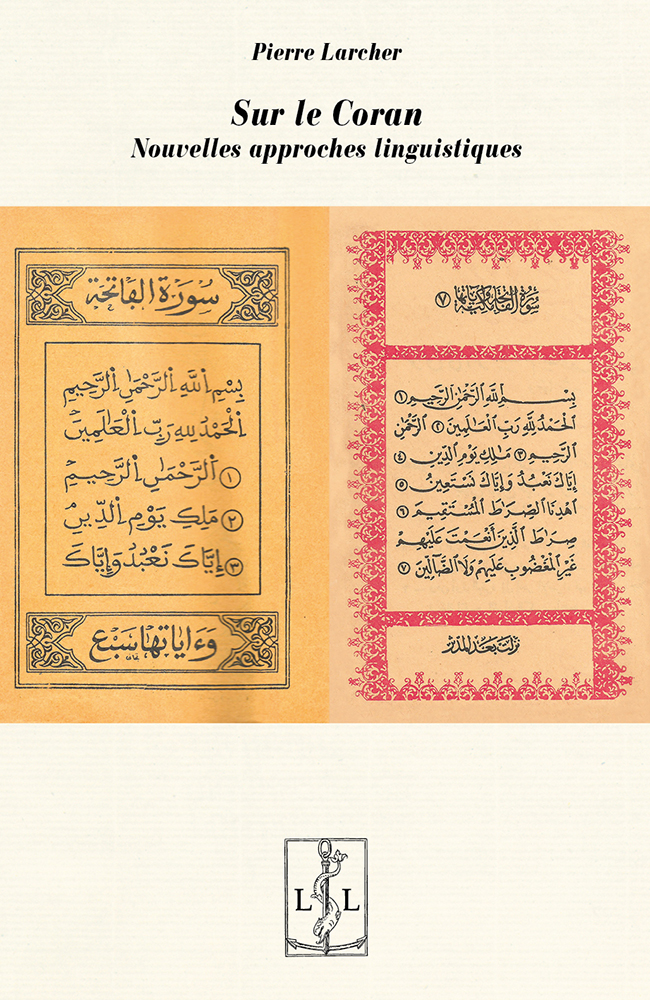 Pierre Larcher
Sur le Coran
Nouvelles approches linguistiques
سُورَةُ الفَاتِحَةِ
بِسْمِ اِللَّهِ اِلرَّحْمَٰنِ اِلرَّحِيمِ
اِلْحَمْدُ لِلهِ رَبِّ اِلْعَٰلَمِينَ
١ اَلرَّحْمَٰنِ اِلرَّحِيمِ
٢ مَلِكِ يَوْمِ اِلدِّينِ
٣ إِيَّاكَ نَعْبُدُ وَإِيَّاكَ
وَءَايَاتُهَا سَبْع
سُورَةُ الفَاتِحَةِ مَكِّيَّة وَآيَاتُهَا ٧
بِسْمِ ٱللَّهِ ٱلرَّحْمَٰنِ ٱلرَّحِيمِ ١
ٱلْحَمْدُ لِلَّهِ رَبِّ ٱلْعَالَمِينَ ٢ ٱلرَّحْمَٰنِ
ٱلرَّحِيمِ ٣ مَالِكِ يَوْمِ ٱلدِّينِ ٤
إِيَّاكَ نَعْبُدُ وَإِيَّاكَ نَسْتَعِينُ ٥
ٱهْدِنَا ٱلصِّرَاطَ ٱلْمُسْتَقِيمَ ٦
صِرَاطَ ٱلَّذِينَ أَنْعَمْتَ عَلَيْهِمْ
غَيْرِ ٱلْمَغْضُوبِ عَلَيْهِمْ وَلَا ٱلضَّالِّينَ ٧
نزلت بعد المدثر
L L